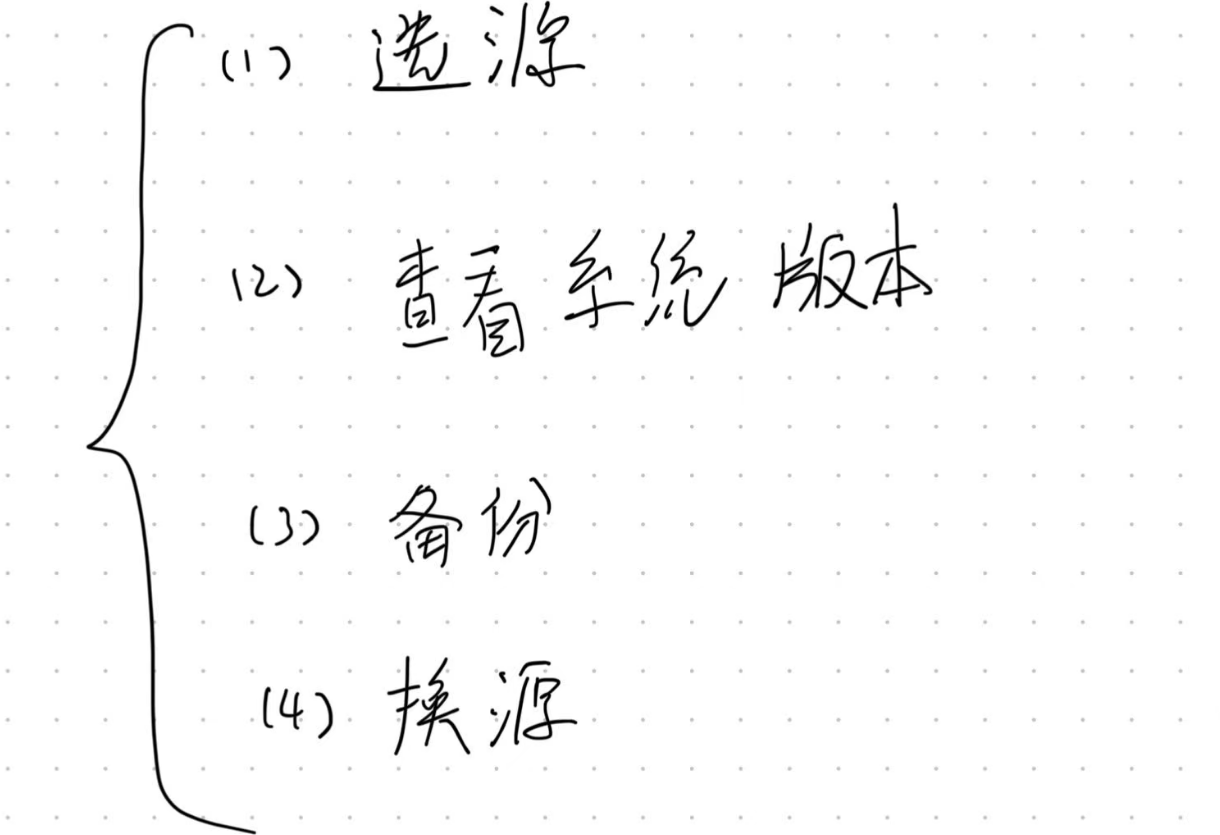 (1) 选源
(2) 查看系统版本
(3) 备份
(4) 换源